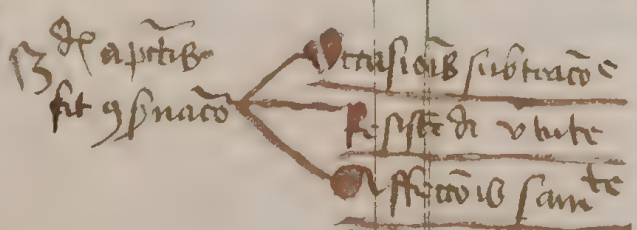 a pctis
fit 9ſ̄uacō
Occasiōis subtracōe
Resistēdi vtute
Affectōis sanᵗᵗᵉ